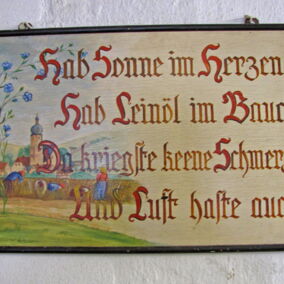 Hab Sonne im Herzen
Hab Leinöl im Bauc
Da kriegste keene Schmerz
Und Luft haste auc